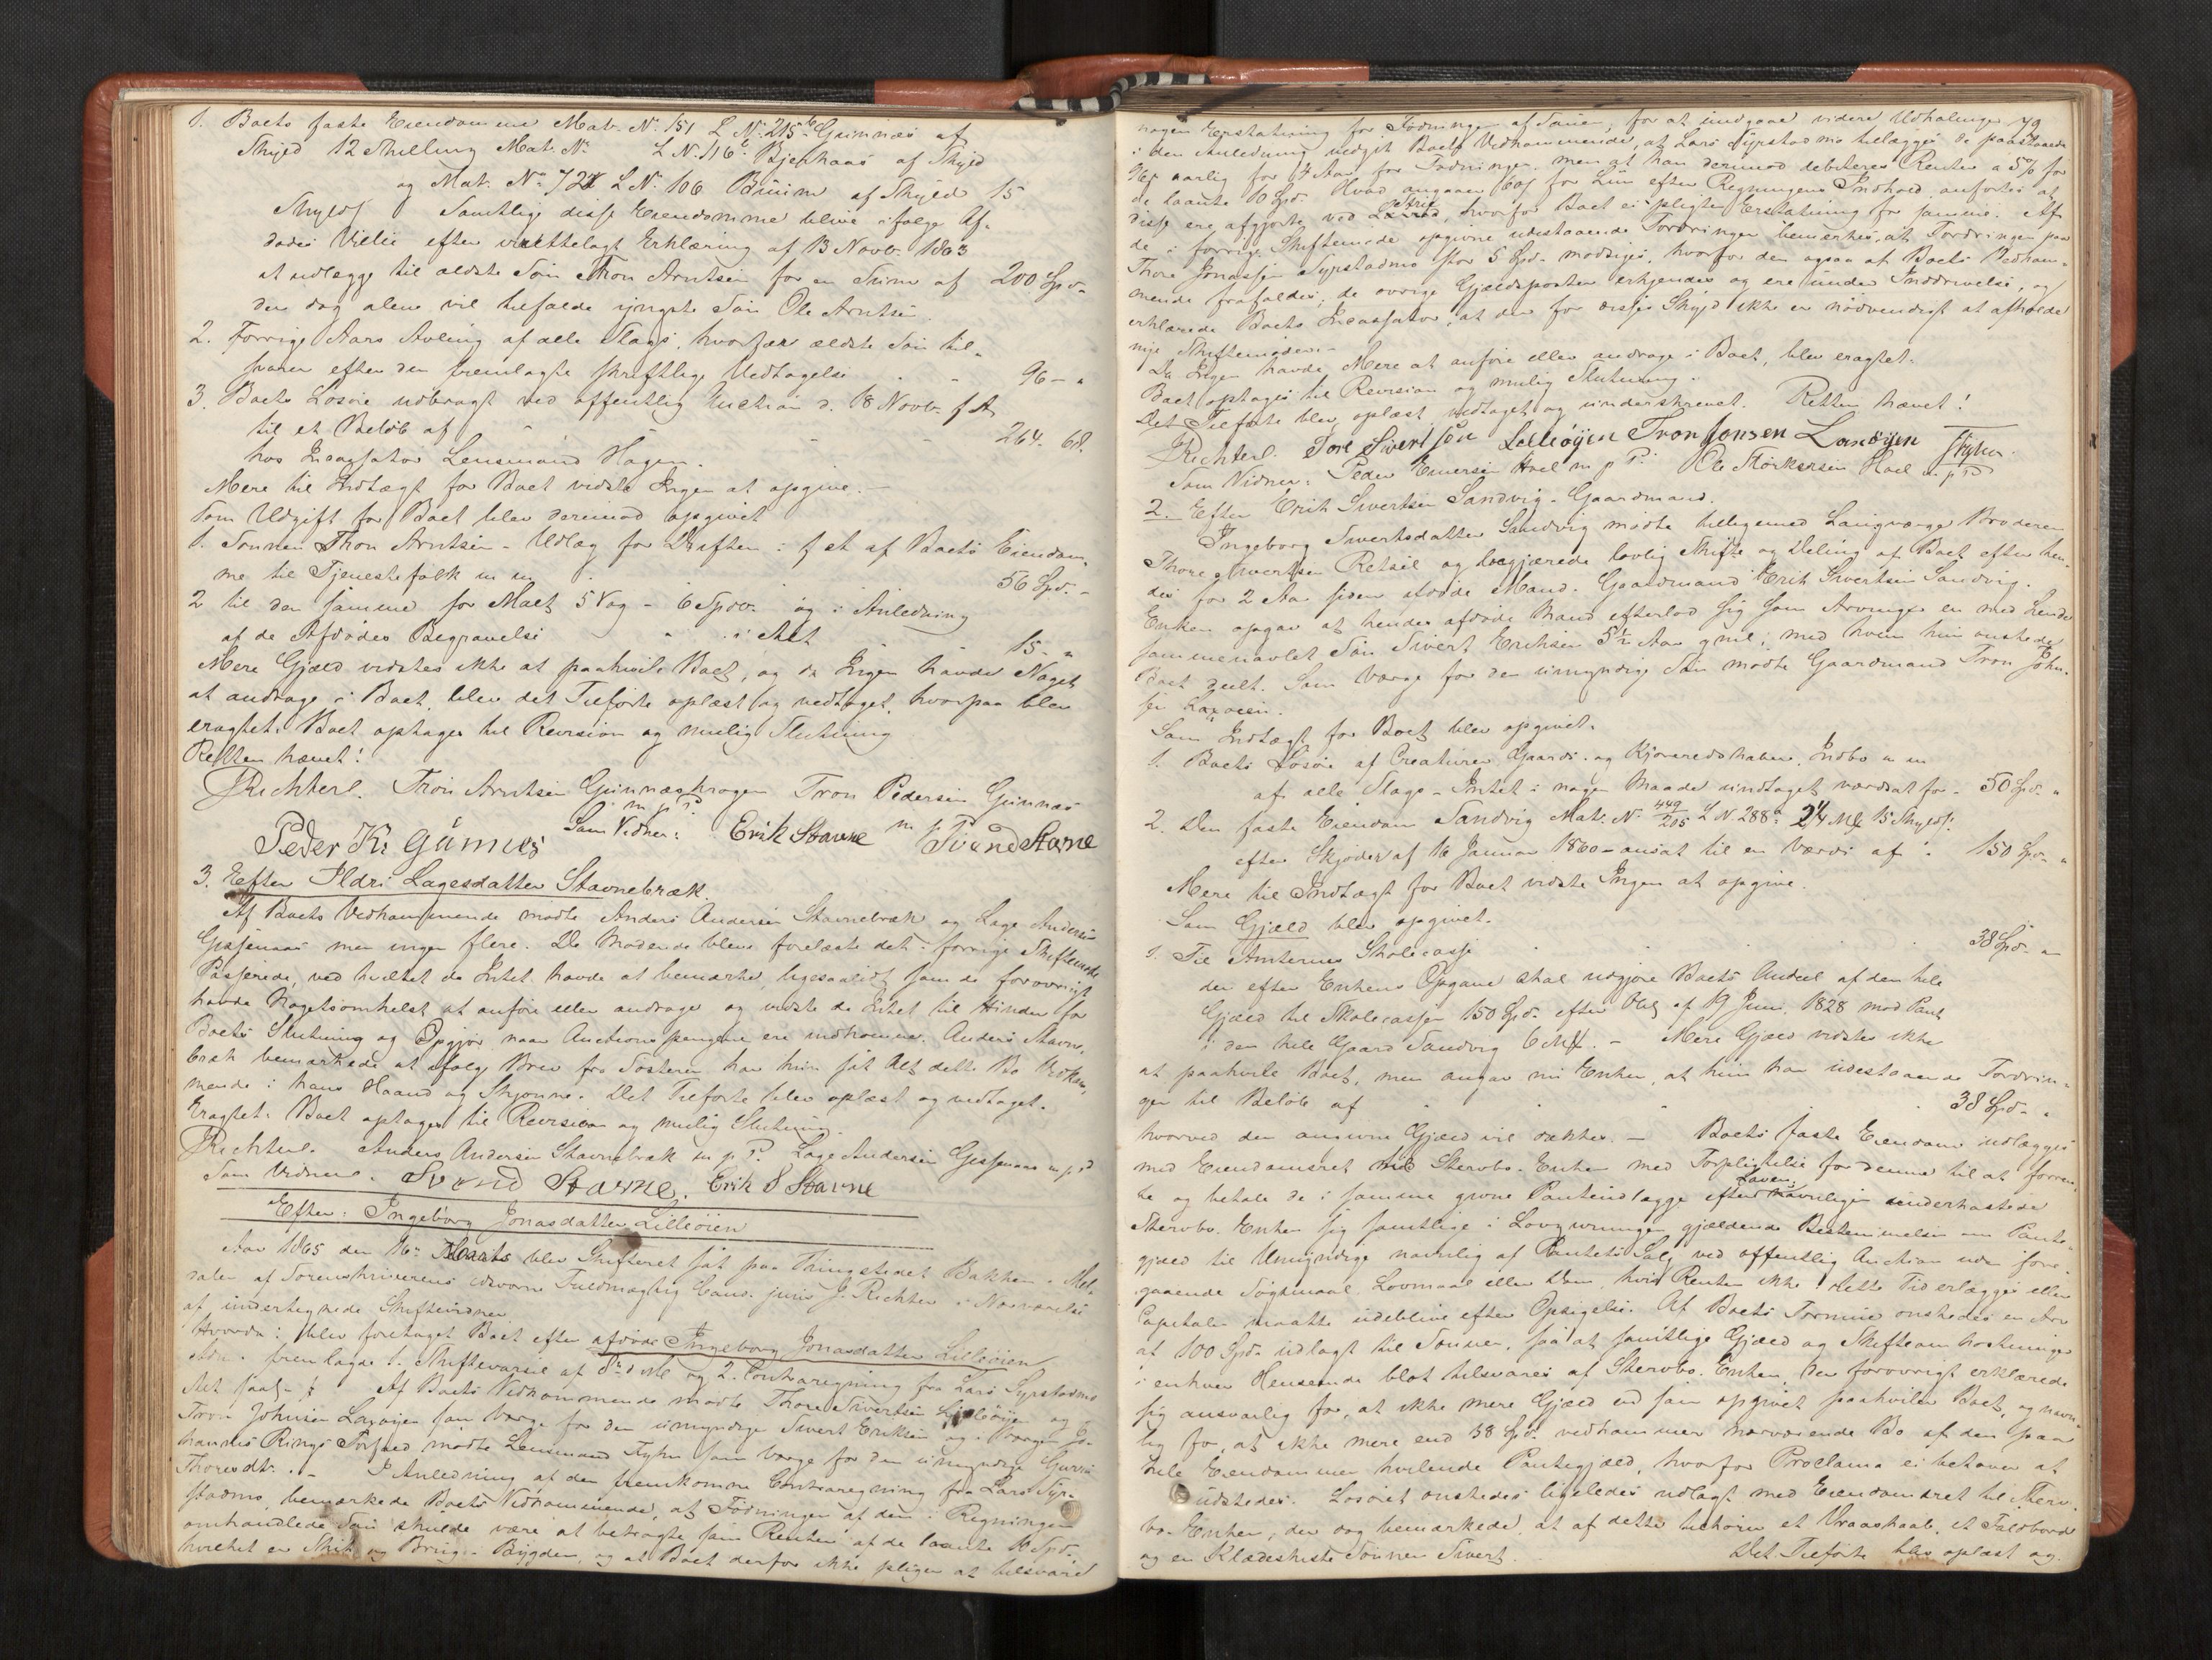 1. Boets faste Eiendomme Mat. No. 151 L No. 215 b Grimnes af
Skyld 12 Skilling Mat. No. L N. 116 b af Skyld
og Mat. No. 72 L No. 106 af Skyld 15
Skyld. Samtlige disse Eiendomme blive ifølge Af-
dødes Villie efter Erklæring af 13 Novbr. 1863
at udlægge til ældste Søn Thron Arntsen for en Summa af 200 Spd.
der dog alene vil tilfalde yngste Søn Ole Arntsen.
2. Forrige Aars Avling af alle Slags, hvorfor ældste Søn til-
svarer efter den fremlagte skriftlige Vedtagelse - - 96 - "
3. Boets Løsøre udbragt ved offentlig Auction d. 18 Novbr. f A.
til et Beløb af - - - 264. 68.
hos Incassator Lensmand Hagen.
Mere til Indtægt for Boet vidste Ingen at opgive. -
Som Udgift for Boet blev derimod opgivet
1. Sønnen Thron Arntsen - Udlæg for Driften af Boets Eiendom-
me til Tjenestefolk m m 56 Spd. -
2 til den samme for Malt 5 Vog - 6 Spdr. og i Anledning
af de Afdødes Begravelse " i Alt 15 - "
Mere Gjæld vidstes ikke at paahvile Boet, og da Ingen havde Noget
at andrage i Boet, blev det Tilførte oplæst og vedtaget, hvorpaa blev
eragtet: Boet optages til Revision og mulig Slutning
Retten hævet!
JRichterl. Tron Arntsen Grimnæshagen Tron Pedersen Grimnæs
m p P. m p P
Peder K. Gümnes Som Vidner: Erik Stavne Svend Stavne
3. Efter Ildri Lagesdatter Stavnebræk.
Af Boets Vedkommende mødte Anders Andersen Stavnebræk og Lage Andersen
Gjøssenaas men ingen flere. De Mødende bleve forelæste det i forrige Skiftemøde
Passerede, ved hvilket de Intet havde at bemærke, ligesaalidt som de forøvrigt
havde Nogetsomhelst at anføre eller andrage og vidste de Intet til Hinder for
Boets Slutning og Opgjør naar Auctionspengene ere indkomne. Anders Stavne-
bræk bemærkede at ifølge Brev fra Søsteren har hun sat Alt dette Bo Vedkom-
mende i hans Haand og Skjønne. Det Tilførte blev oplæst og vedtaget.
Eragtet: Boet optages til Revision og mulig Slutning.
JRichterl. Anders Andersen Stavnebræk m p P. Lage Andersen Gjøssenaas m p P
Som Vidner. Svend Stavne. Erik S Stavne
Efter: Ingeborg Jonasdatter Lilleøien
Aar 1865 den 16de Marts blev Skifteret sat paa Thingstedet Bakken i Mel-
dalen af Sorenskriverens edsvorne Fuldmægtig Cand. juris J. Richter i Nærværelse
af undertegnede Skiftevidner
Hvorda: blev foretaget Boet efter afdøde Ingeborg Jonasdatter Lilleøien
Adm. fremlagde 1. Skiftevarsel af 8de d Md og 2. Contraregning fra Lars Syrstadmo
Alt saal. Af Boets Vedkommende mødte Thore Sivertsen Lilleøijen og
Tron Johnsen Lanøijen som Værge for den umyndige Sivert Eriksen og i Værgen Jo-
hannes Rings Forfald mødte Lensmand Styhr som Værge for den umyndige Guru
Thoresdtr. - I Anledning af den fremkomne Contraregning fra Lars Syr-
stadmo, bemærkede Boets Vedkommende, at Fødningen af den i Regningen
omhandlede Sau skulde være at betragte som Renter af de laante 10 Spd.,
hvilket er Skik og Brug i Bygden, og at Boet derfor ikke pligter at tilsvare
79
nogen Erstatning for Fødningen af Sauen; for at undgaae videre Udhalinger
i den Anledning vedgik Boets Vedkommende, at Lars Syrstadmo tillægges de paastaaede
96 s aarlig for 4 Aar for Fødningen, men at han derimod debiteres Renter a 5% for
de laante 10 Spd. Hvad angaaer 60 s for efter Regningens Indhold anførtes at
disse ere afgjorte ved , hvorfor Boet ei pligter Erstatning for samme. Af
de i forrige Skiftemøde opgivne udestaaende Fordringer bemerkes, at Fordringen paa
Thore Jonassen Syrstadmo stor 5 Spd. modsiges, hvorfor den ogsaa af Boets Vedkom-
mende frafaldes; de øvrige Gjældsposter erkjendes og ere under Inddrivelse, og
erklærede Boets Incassator, at det for disses Skyld ikke er nødvendigt at afholde
nye Skiftemøder. -
Da Ingen havde Mere at anføre eller andrage i Boet, blev eragtet:
Boet optages til Revision og mulig Slutning.
Det Tilførte blev oplæst vedtaget og underskrevet. Retten hævet!
JRichterl. Tore Sivertsøn Lilleøijen Tron Jonsen Lanøijen Styhr.
Som Vidner: Peder Hoel m p P. Ole Størkersen Hoel m p P
2. Efter Erik Sivertsen Sandvig - Gaardmand.
Ingeborg Sivertsdatter Sandvig mødte tilligemed Laugværge Broderen
Thore Sivertsen Retsel og begjærede lovlig Skifte og Deling af Boet efter hen-
des for 2 Aar siden afdøde Mand Gaardmand Erik Sivertsen Sandvig.
Enken opgav at hendes afdøde Mand efterlod sig som Arvinger en med hende
sammenavlet Søn Sivert Eriksen 5½ Aar gml; med hvem hun ønskede
Boet deelt. Som Værge for den umyndige Søn mødte Gaardmand Tron John-
sen Lanøien.
Som Indtægt for Boet blev opgivet.
1. Boets Løsøre af Creaturer Gaards- og Kjøreredskaber, Indbo m m
af alle Slags - Intet i nogen Maade undtaget værdsat for - 50 Spd. "
2. Den faste Eiendom Sandvig Mat. No. 449/205 L N 288 a 2¼ Mk 15 Skyld.
efter Skjøder af 16 Januar 1860 - ansat til en Værdi af : 150 Spd. "
Mere til Indtægt for Boet vidste Ingen at opgive.
Som Gjæld blev opgivet.
1. Til Amternes Skolecasse 38 Spd. "
der efter Enkens Opgave skal udgjøre Boets Andeel af den hele
Gjæld til Skolecassen 150 Spd. efter Obl af 19 Juni 1828 mod Pant
i den hele Gaard Sandvig 6 Mk. - Mere Gjæld vidstes ikke
at paahvile Boet, men angav nu Enken, at hun har udestaaende Fordrin-
ger til Beløb af " " 38 Spd. "
hvorved den angivne Gjæld vil dækkes. - Boets faste Eiendom udlægges
med Eiendomsret til Stervbo-Enken med Forpligtelse for denne til at forren-
te og betale de i samme givne Pantudlægge efter Loven, underkastede
Stervbo-Enken sig samtlige i Lovgivningen gjældende Bestemmelser om Pante-
gjæld til Umyndige navnlig af Pantets Salg ved offentlig Auction uden fore-
gaaende Søgsmaal Lovmaal eller Dom, hvis Renter ikke i rette Tid erlægges eller
Capitalen maatte udeblive efter Opsigelse. Af Boets Formue ønskedes en Arv
at 100 Spd. udlagt til Sønnen, saa at samtlige Gjæld og Skifteomkostninger
i enhver Henseende blot tilsvares af Stervbo-Enken, der forøvrigt erklærede
sig ansvarlig for, at ikke mere Gjæld end som opgivet paahviler Boet, og navn-
lig for, at ikke mere end 38 Spd. vedkommer nærværende Bo af den paa
hele Eiendommen hvilende Pantegjæld, hvorfor Proclama ei behøver at
udstedes. Løsøret ønskedes ligeledes udlagt med Eiendomsret til Sterv-
bo-Enken, der dog bemærkede at af dette tilhører et Vraaskaab, et Foldbord
og en Klædeskiste Sønnen Sivert. Det Tilførte blev oplæst og